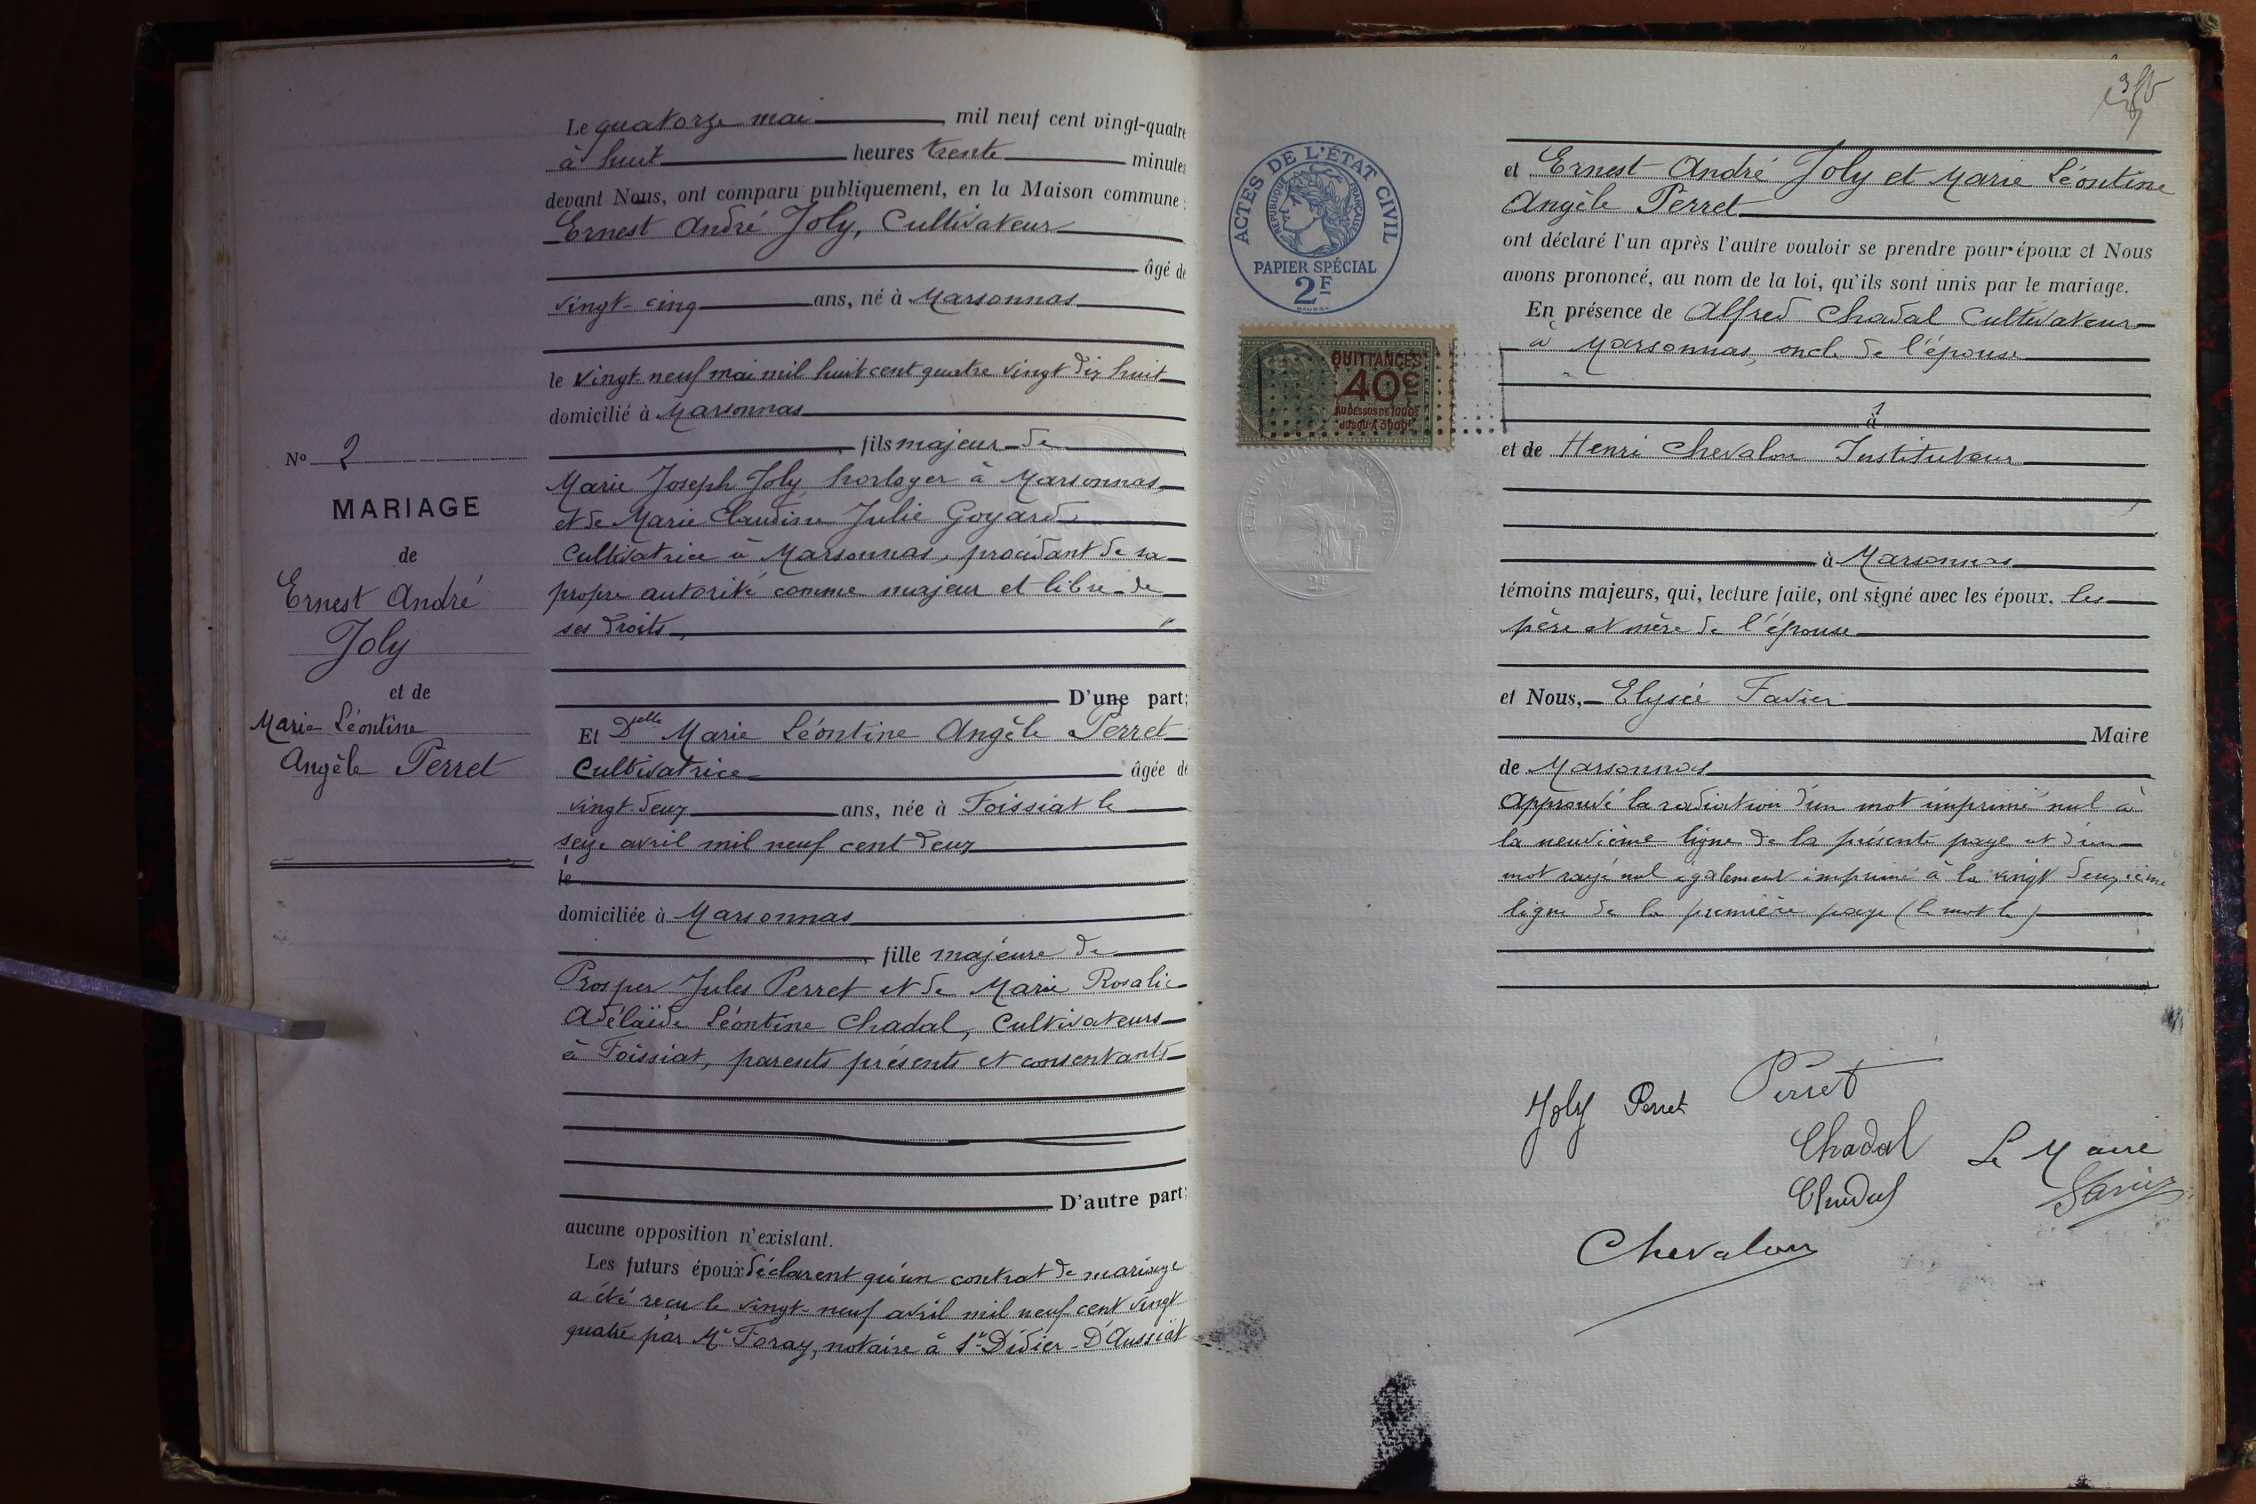 N° 2
MARIAGE
de
Ernest André
Joly
et de
Marie Léontine
Angèle Perret
Le quatorze mai mil neuf cent vingt-quatre
à huit heures trente minutes
devant Nous, ont comparu publiquement, en la Maison commune :
Ernest André Joly, Cultivateur
âgé de
vingt-cinq ans, né à Marsonnas
le vingt neuf mai mil huit cent quatre vingt dix huit
domicilié à Marsonnas
fils majeur de
Marie Joseph Joly horloger à Marsonnas
et de Marie Claudine Julie Goyard
Cultivatrice à Marsonnas, procédant de sa
propre autorité comme majeur et libre de
ses droits,
D'une part;
Et Delle Marie Léontine Angèle Perret
Cultivatrice âgée de
vingt-deux ans, née à Foissiat le
seize avril mil neuf cent deux
le
domiciliée à Marsonnas
fille majeure de
Prosper Jules Perret et de Marie Rosalie
Adélaïde Léontine Chadal, Cultivateurs
à Foissiat, parents présents et consentants
D'autre part;
aucune opposition n'existant.
Les futurs époux déclarent qu'un contrat de mariage
a été reçu le vingt-neuf avril mil neuf cent vingt
quatre par Me Foray, notaire à St-Didier-D'Aussiat
ACTES DE L'ÉTAT CIVIL
RÉPUBLIQUE FRANÇAISE
PAPIER SPÉCIAL
2F
QUITTANCES
40c
AU DESSUS DE 1000F
JUSQU'A 3000F
2F
et Ernest André Joly et Marie Léontine
Angèle Perret
ont déclaré l'un après l'autre vouloir se prendre pour époux et Nous
avons prononcé, au nom de la loi, qu'ils sont unis par le mariage.
En présence de Alfred Chadal Cultivateur
à Marsonnas, oncle de l'épouse
à
et de Henri Chevalon Instituteur
à Marsonnas
témoins majeurs, qui, lecture faite, ont signé avec les époux. les
père et mère de l'épouse
et Nous, Elysée Favier
Maire
de Marsonnas
Approuvé la radiation d'un mot imprimé nul à
la neuvième ligne de la présente page et d'un
mot rayé nul également imprimé à la vingt deuxième
ligne de la première page (le mot le)
Joly Perret Perret
Chadal Le Maire
Chadal Favier
Chevalon